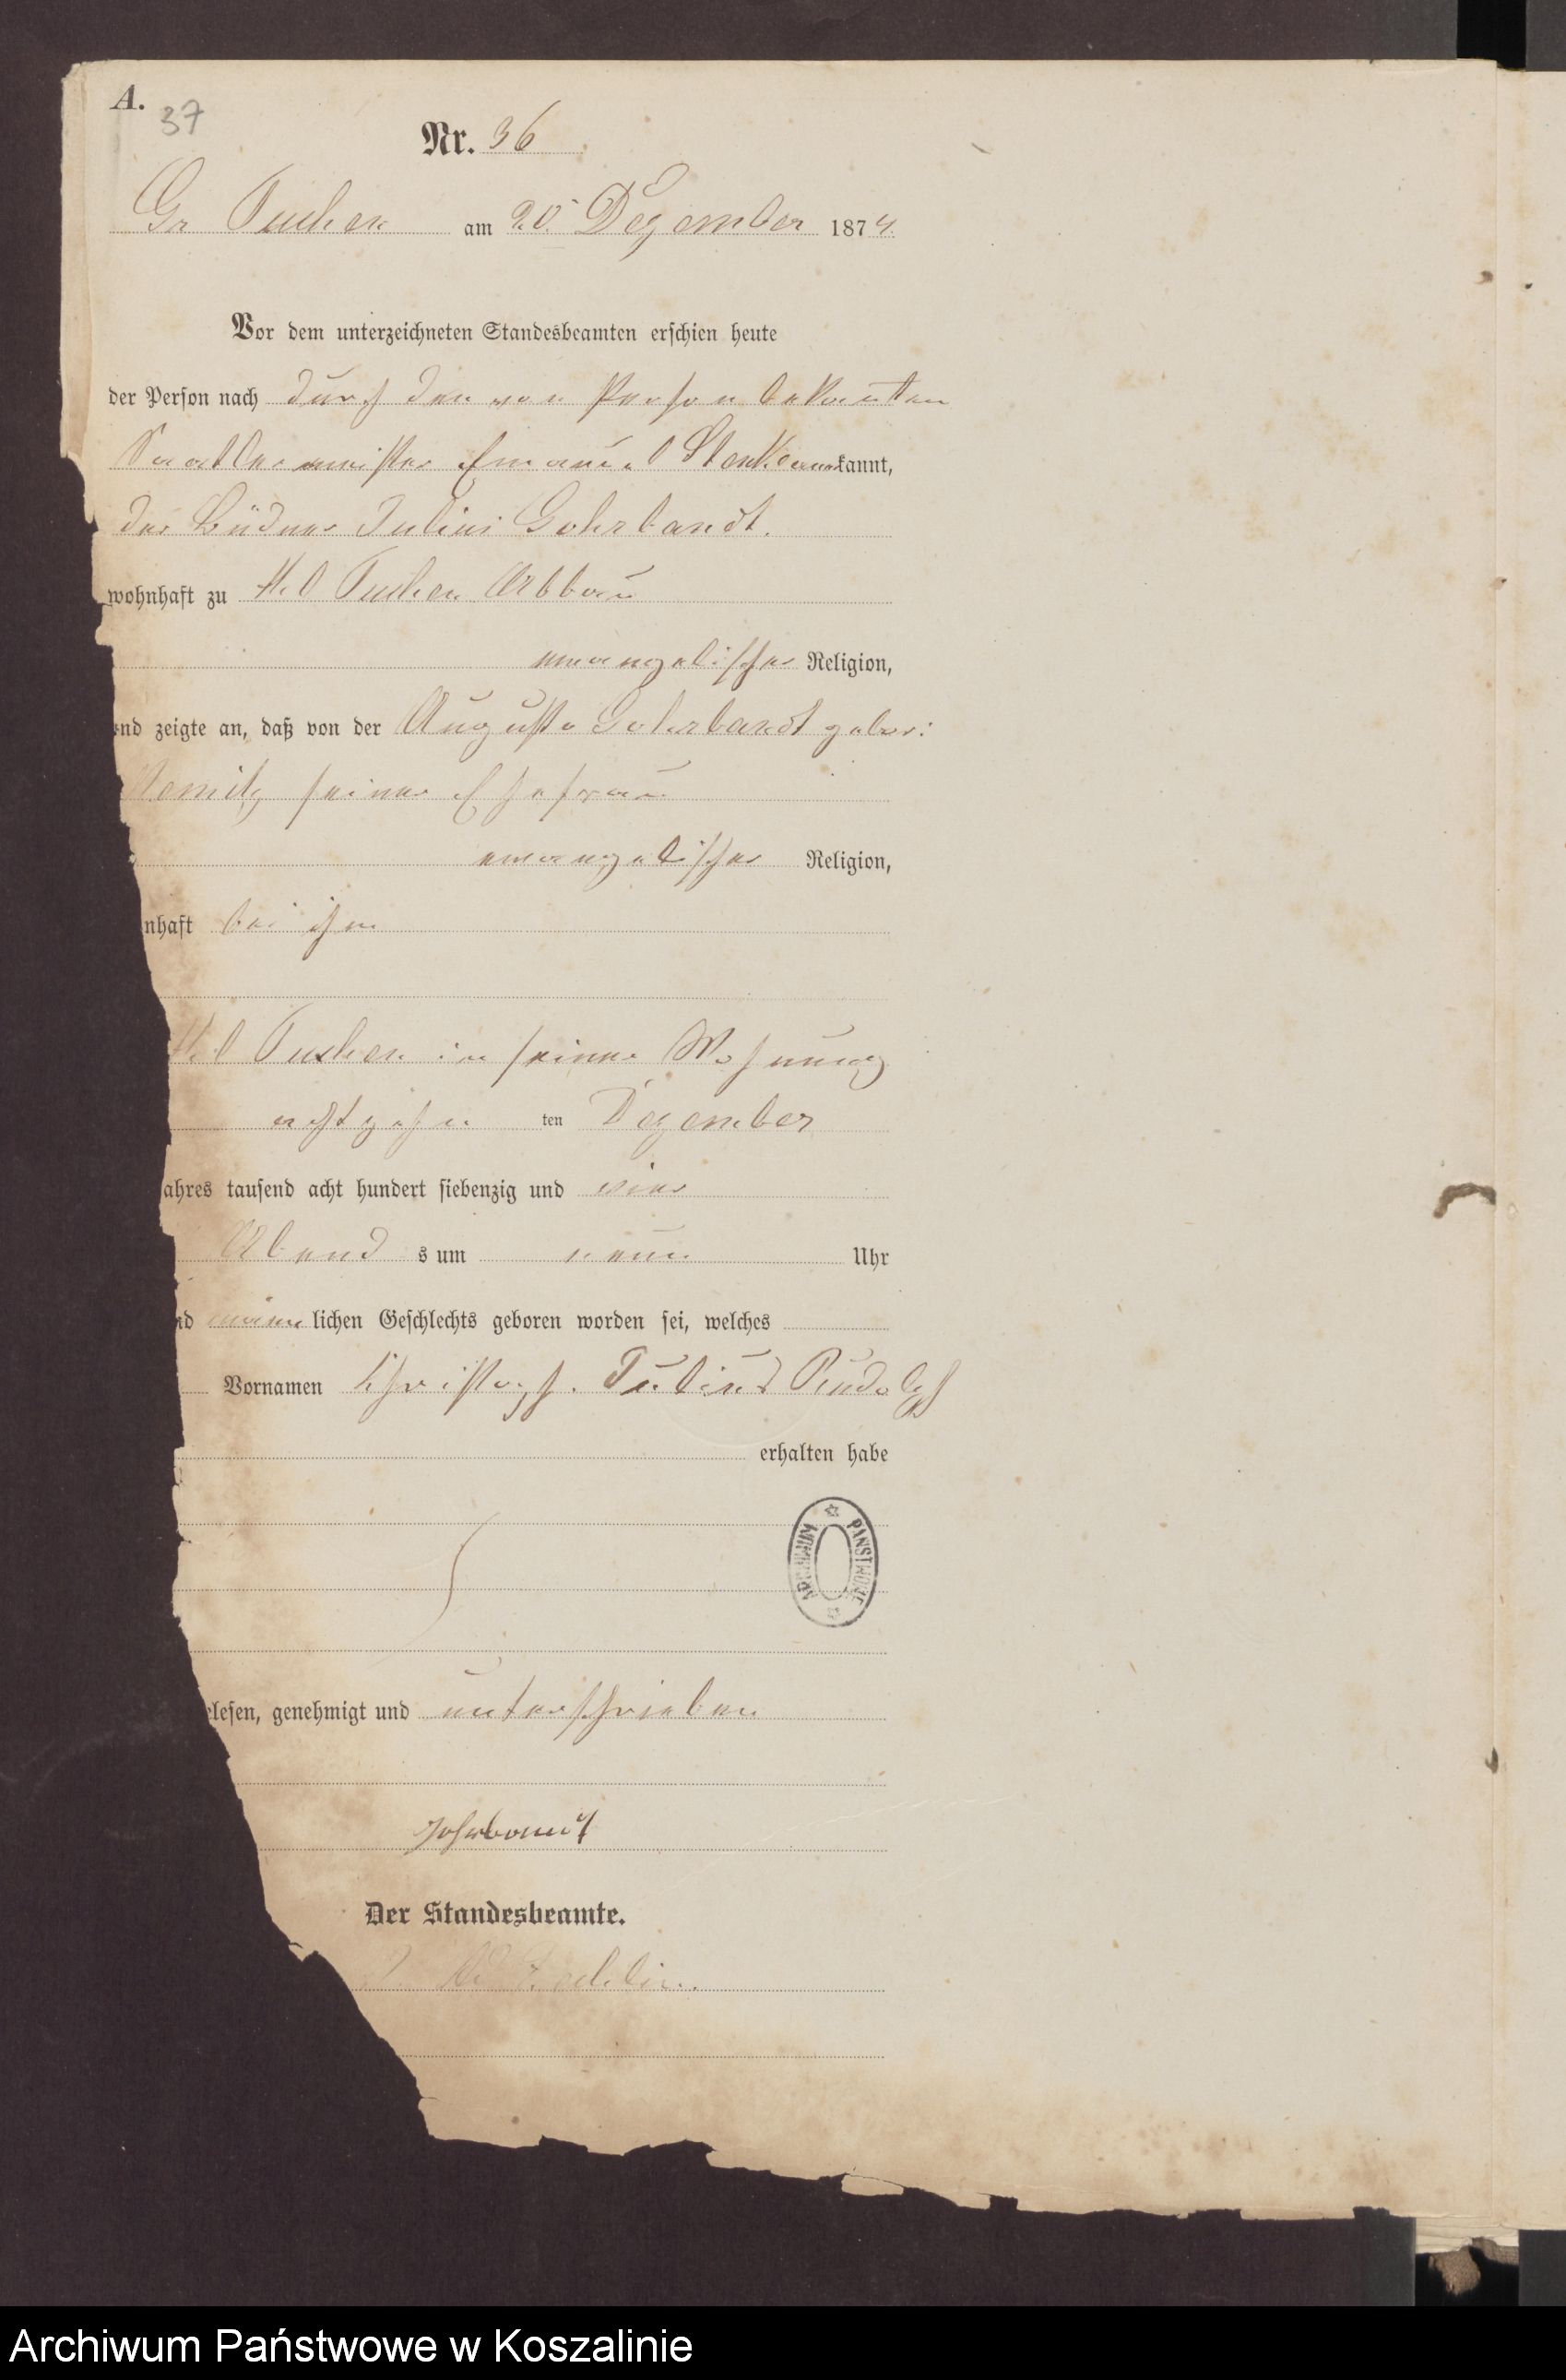 A.
37
Nr. 36
Gr Tuchen am 20. Dezember 1874.
Vor dem unterzeichneten Standesbeamten erschien heute
der Person nach durch den von Person bekannten
Sattlermeister Emanuel kannt,
der Büdner Julius Gohrbandt.
wohnhaft zu Kl Tuchen Abbau
evangelischer Religion,
und zeigte an, daß von der Auguste Gohrbandt gebor:
seiner Ehefrau
evangelischer Religion,
nhaft bei ihm
Kl Tuchen in seiner Wohnung
achtzehn ten Dezember
ahres tausend acht hundert siebenzig und vier
Abend s um neun Uhr
nd männ lichen Geschlechts geboren worden sei, welches
Vornamen Christoph. Julius Rudolph
erhalten habe
ARCHIWUM PAŃSTWOWE
elesen, genehmigt und unterschrieben
Gohrbandt
Der Standesbeamte.
Archiwum Państwowe w Koszalinie